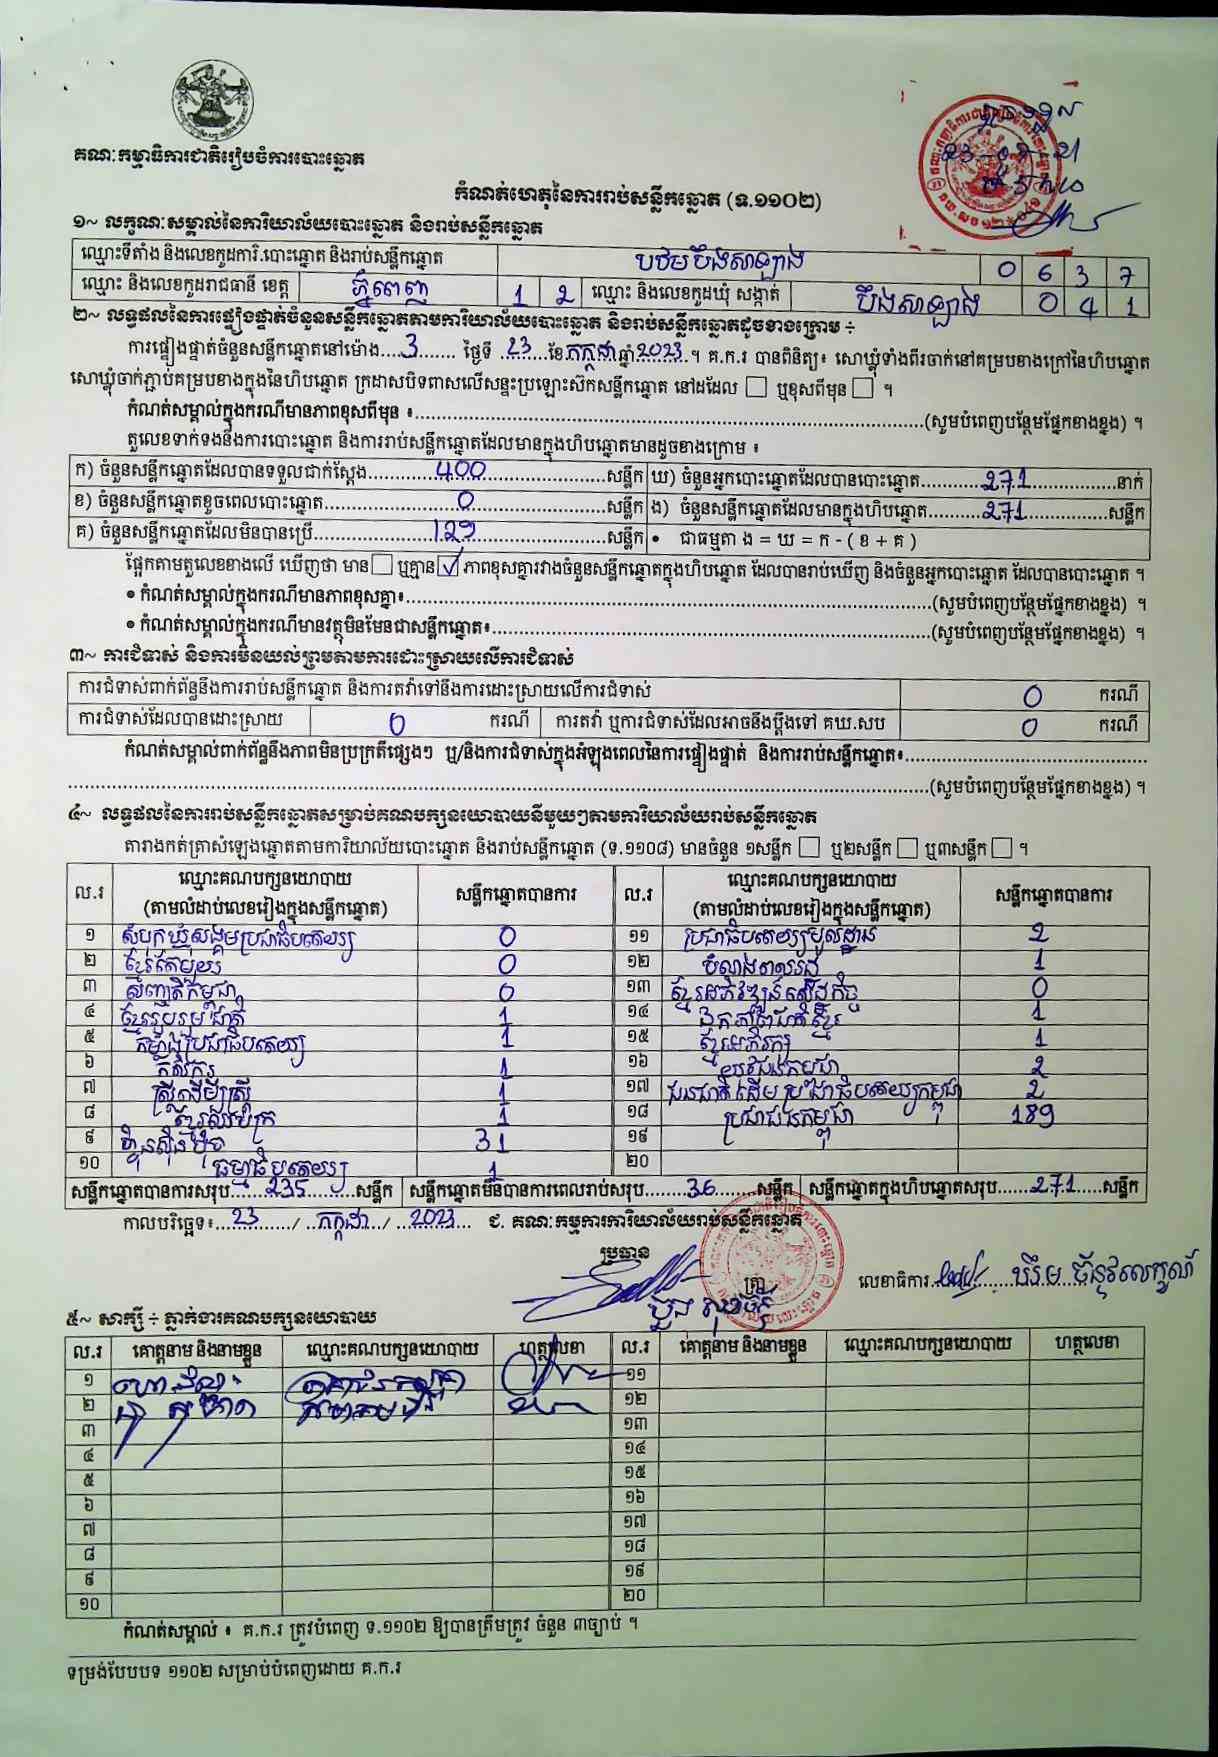 គណៈកម្មាធិការជាតិរៀបចំការបោះឆ្នោត
កំណត់ហេតុនៃការរាប់សន្លឹកឆ្នោត (ទ.១១០២)
១~ លក្ខណៈសម្គាល់នៃការិយាល័យបោះឆ្នោត និងរាប់សន្លឹកឆ្នោត
ឈ្មោះទីតាំង និងលេខកូដការិ.បោះឆ្នោត និងរាប់សន្លឹកឆ្នោត បឋមបឹងសាឡាង 0 6 3 7
ឈ្មោះ និងលេខកូដរាជធានី ខេត្ត ភ្នំពេញ 1 2 ឈ្មោះ និងលេខកូដឃុំ សង្កាត់ បឹងសាឡាង 0 4 1
២~ លទ្ធផលនៃការផ្ទៀងផ្ទាត់ចំនួនសន្លឹកឆ្នោតតាមការិយាល័យបោះឆ្នោត និងរាប់សន្លឹកឆ្នោតដូចខាងក្រោម ÷
ការផ្ទៀងផ្ទាត់ចំនួនសន្លឹកឆ្នោតនៅម៉ោង....3........ ថ្ងៃទី .23....ខែកក្កដាឆ្នាំ2023.។ គ.ក.រ បានពិនិត្យ៖ សោឃ្លុំទាំងពីរចាក់នៅគម្របខាងក្រៅនៃហិបឆ្នោត
សោឃ្លុំចាក់ភ្ជាប់គម្របខាងក្នុងនៃហិបឆ្នោត ក្រដាសបិទពាសលើសន្ទះប្រឡោះស៊កសន្លឹកឆ្នោត នៅដដែល ☐ ឬខុសពីមុន ☐ ។
កំណត់សម្គាល់ក្នុងករណីមានភាពខុសពីមុន ៖..........(សូមបំពេញបន្ថែមផ្នែកខាងខ្នង) ។
តួលេខទាក់ទងនឹងការបោះឆ្នោត និងការរាប់សន្លឹកឆ្នោតដែលមានក្នុងហិបឆ្នោតមានដូចខាងក្រោម ៖
ក) ចំនួនសន្លឹកឆ្នោតដែលបានទទួលជាក់ស្តែង.....400.....សន្លឹក ឃ) ចំនួនអ្នកបោះឆ្នោតដែលបានបោះឆ្នោត.....271.....នាក់
ខ) ចំនួនសន្លឹកឆ្នោតខូចពេលបោះឆ្នោត.....0.....សន្លឹក ង) ចំនួនសន្លឹកឆ្នោតដែលមានក្នុងហិបឆ្នោត.....271.....សន្លឹក
គ) ចំនួនសន្លឹកឆ្នោតដែលមិនបានប្រើ.....129.....សន្លឹក • ជាធម្មតា ង = ឃ = ក - ( ខ + គ )
ផ្អែកតាមតួលេខខាងលើ ឃើញថា មាន ☐ ឬគ្មាន ☑ ភាពខុសគ្នារវាងចំនួនសន្លឹកឆ្នោតក្នុងហិបឆ្នោត ដែលបានរាប់ឃើញ និងចំនួនអ្នកបោះឆ្នោត ដែលបានបោះឆ្នោត ។
• កំណត់សម្គាល់ក្នុងករណីមានភាពខុសគ្នា៖..........(សូមបំពេញបន្ថែមផ្នែកខាងខ្នង) ។
• កំណត់សម្គាល់ក្នុងករណីមានវត្ថុមិនមែនជាសន្លឹកឆ្នោត៖..........(សូមបំពេញបន្ថែមផ្នែកខាងខ្នង) ។
៣~ ការជំទាស់ និងការមិនយល់ព្រមតាមការដោះស្រាយលើការជំទាស់
ការជំទាស់ពាក់ព័ន្ធនឹងការរាប់សន្លឹកឆ្នោត និងការតវ៉ាទៅនឹងការដោះស្រាយលើការជំទាស់ 0 ករណី
ការជំទាស់ដែលបានដោះស្រាយ 0 ករណី ការតវ៉ា ឬការជំទាស់ដែលអាចនឹងប្តឹងទៅ គឃ.សប 0 ករណី
កំណត់សម្គាល់ពាក់ព័ន្ធនឹងភាពមិនប្រក្រតីផ្សេងៗ ឬ/និងការជំទាស់ក្នុងអំឡុងពេលនៃការផ្ទៀងផ្ទាត់ និងការរាប់សន្លឹកឆ្នោត៖..........
..........(សូមបំពេញបន្ថែមផ្នែកខាងខ្នង) ។
៤~ លទ្ធផលនៃការរាប់សន្លឹកឆ្នោតសម្រាប់គណបក្សនយោបាយនីមួយៗតាមការិយាល័យរាប់សន្លឹកឆ្នោត
តារាងកត់ត្រាសំឡេងឆ្នោតតាមការិយាល័យបោះឆ្នោត និងរាប់សន្លឹកឆ្នោត (ទ.១១០៨) មានចំនួន ១សន្លឹក ☐ ឬ២សន្លឹក ☐ ឬ៣សន្លឹក ☐ ។
ល.រ ឈ្មោះគណបក្សនយោបាយ (តាមលំដាប់លេខរៀងក្នុងសន្លឹកឆ្នោត) សន្លឹកឆ្នោតបានការ ល.រ ឈ្មោះគណបក្សនយោបាយ (តាមលំដាប់លេខរៀងក្នុងសន្លឹកឆ្នោត) សន្លឹកឆ្នោតបានការ
១ សំបុកឃ្មុំសង្គមប្រជាធិបតេយ្យ 0 ១១ ប្រជាធិបតេយ្យមូលដ្ឋាន 2
២ ខ្មែរតែមួយ 0 ១២ បំណងពលរដ្ឋ 1
៣ សញ្ជាតិកម្ពុជា 0 ១៣ ខ្មែរអភិវឌ្ឍន៍សេដ្ឋកិច្ច 0
៤ ខ្មែររួបរួមជាតិ 1 ១៤ ឯកភាពជាតិខ្មែរ 1
៥ កម្លាំងប្រជាធិបតេយ្យ 1 ១៥ ខ្មែរអភិរក្ស 1
៦ កសិករ 1 ១៦ យុវជនកម្ពុជា 2
៧ ស្ត្រីដើម្បីស្ត្រី 1 ១៧ ជនជាតិដើមប្រជាធិបតេយ្យកម្ពុជា 2
៨ ខ្មែរឈប់ក្រ 1 ១៨ ប្រជាជនកម្ពុជា 189
៩ ហ្វ៊ុនស៊ិនប៉ិច 31 ១៩
១០ ធម្មាធិបតេយ្យ 1 ២០
សន្លឹកឆ្នោតបានការសរុប.....235.....សន្លឹក សន្លឹកឆ្នោតមិនបានការពេលរាប់សរុប.....36.....សន្លឹក សន្លឹកឆ្នោតក្នុងហិបឆ្នោតសរុប.....271.....សន្លឹក
កាលបរិច្ឆេទ៖..23....../ ..កក្កដា../ ..2023.... ជ. គណៈកម្មការការិយាល័យរាប់សន្លឹកឆ្នោត
ប្រធាន
ត្រា
លេខាធិការ
៥~ សាក្សី ÷ ភ្នាក់ងារគណបក្សនយោបាយ
ល.រ គោត្តនាម និងនាមខ្លួន ឈ្មោះគណបក្សនយោបាយ ហត្ថលេខា ល.រ គោត្តនាម និងនាមខ្លួន ឈ្មោះគណបក្សនយោបាយ ហត្ថលេខា
១ ១១
២ ១២
៣ ១៣
៤ ១៤
៥ ១៥
៦ ១៦
៧ ១៧
៨ ១៨
៩ ១៩
១០ ២០
កំណត់សម្គាល់ ៖ គ.ក.រ ត្រូវបំពេញ ទ.១១០២ ឱ្យបានត្រឹមត្រូវ ចំនួន ៣ច្បាប់ ។
ទម្រង់បែបបទ ១១០២ សម្រាប់បំពេញដោយ គ.ក.រ